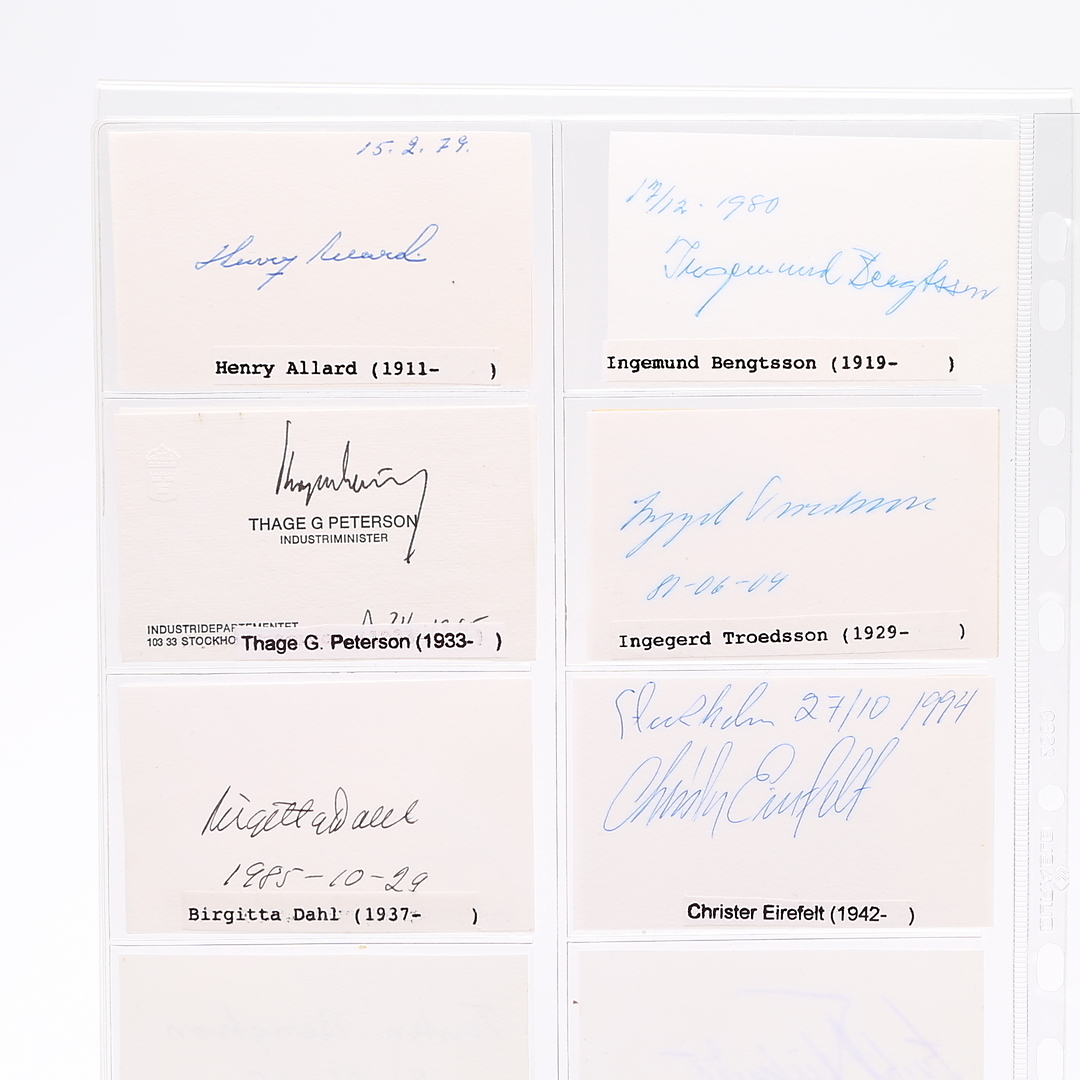 15.2.79.
Henry Allard
Henry Allard (1911- )
17/12 - 1980
Ingemund Bengtsson
Ingemund Bengtsson (1919- )
THAGE G PETERSON
INDUSTRIMINISTER
INDUSTRIDEPARTEMENTET
103 33 STOCKHO
Thage G. Peterson (1933- )
Ingegerd Troedsson
81-06-04
Ingegerd Troedsson (1929- )
Birgitta Dahl
1985-10-29
Birgitta Dahl (1937- )
Stockholm 27/10 1994
Christer Eirefelt
Christer Eirefelt (1942- )